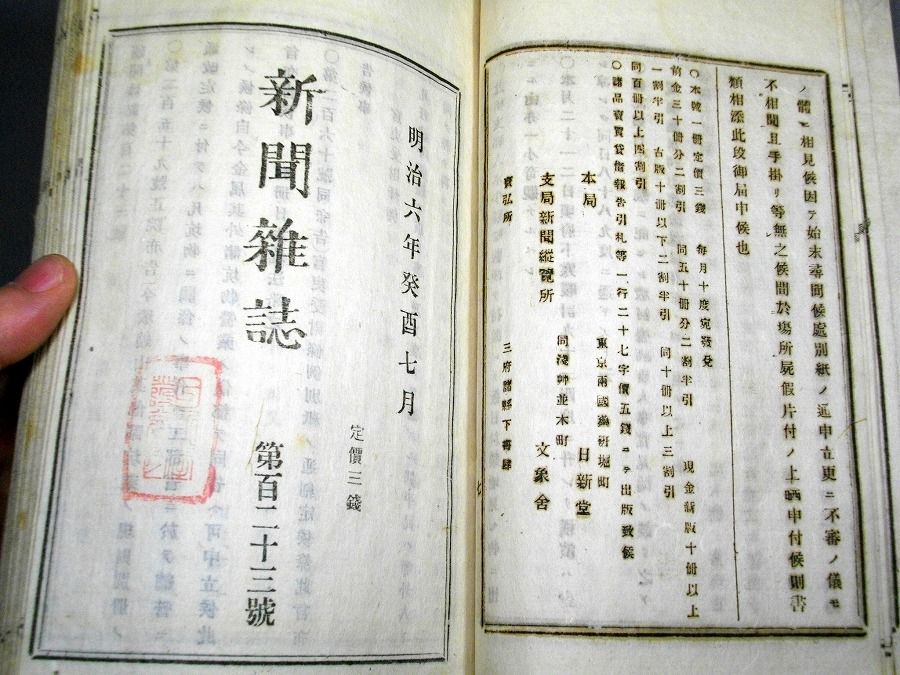 ノ體ニ相見候因テ始末尋問候處別紙ノ通申立更ニ不審ノ儀モ
不相聞且手掛リ等無之候間於場所屍假片付ノ上晒申付候則書
類相添此段御届申候也
〇本號一冊定價三錢 每月十度宛發兌
前金三十冊分二割引 同五十冊分二割半引 現金新版十冊以上
一割半引 古版十冊以下二割半引 同十冊以上三割引
同百冊以上四割引
〇諸品賣買貸借報告引札等一行二十七字價五錢ニテ出版致候
本局 東京兩國藥研堀町 日新堂
支局新聞縱覽所 同淺艸並木町 文象舍
賣弘所 三府諸縣下書肆
明治六年癸酉七月
定價三錢
新聞雜誌
第百二十三號